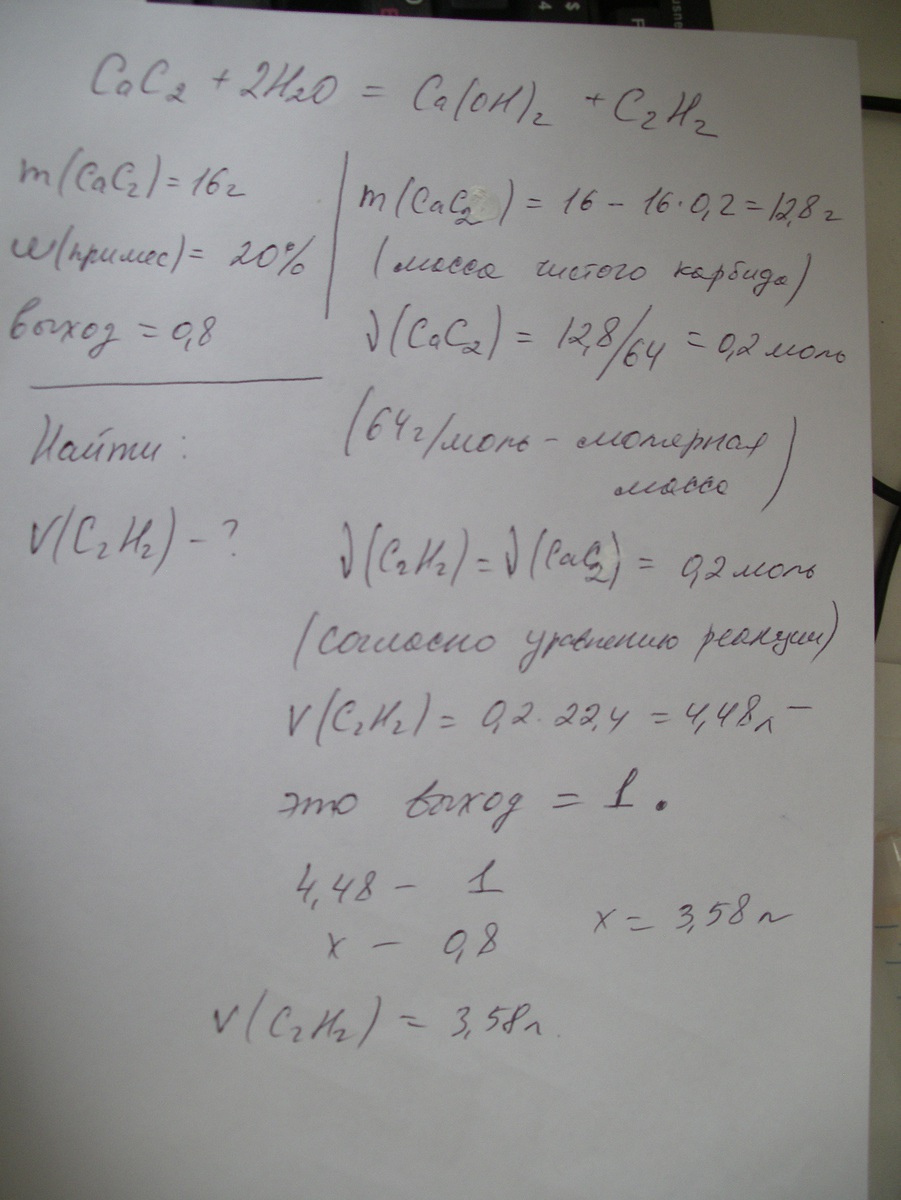 CaC2 + 2H2O = Ca(OH)2 + C2H2
m(CaC2) = 16г
w(примес) = 20%
выход = 0,8
Найти:
V(C2H2) - ?
m(CaC2) = 16 - 16·0,2 = 12,8г
(масса чистого карбида)
ν(CaC2) = 12,8/64 = 0,2 моль
(64г/моль - молярная
масса)
ν(C2H2) = ν(CaC2) = 0,2 моль
(согласно уравнению реакции)
V(C2H2) = 0,2·22,4 = 4,48л -
это выход = 1.
4,48 - 1
x - 0,8
x = 3,58л
V(C2H2) = 3,58л.